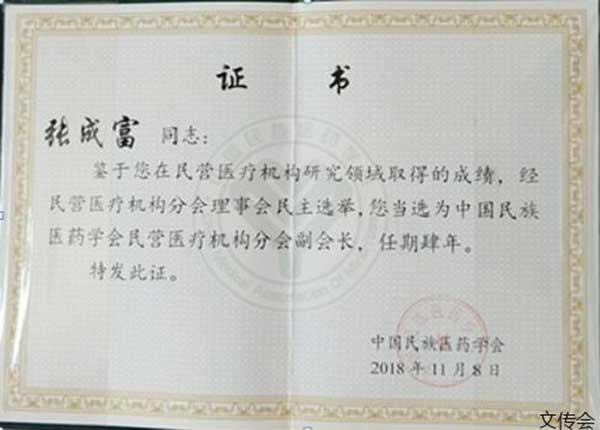 证 书
张成富 同志：
鉴于您在民营医疗机构研究领域取得的成绩，经
民营医疗机构分会理事会民主选举，您当选为中国民族
医药学会民营医疗机构分会副会长，任期肆年。
特发此证。
中国民族医药学会
2018 年 11 月 8 日
文传会